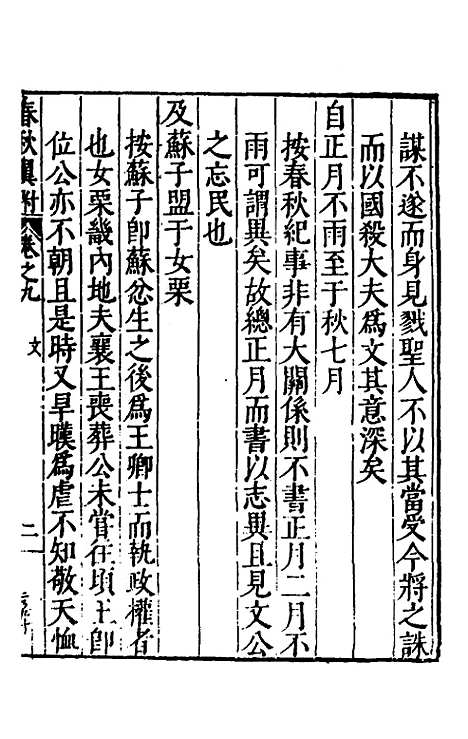 謀不遂而身見戮聖人不以其當受今將之誅
而以國殺大夫爲文其意深矣
自正月不雨至于秋七月
按春秋紀事非有大關係則不書正月二月不
雨可謂異矣故總正月而書以志異且見文公
之忘民也
及蘇子盟于女栗
按蘇子卽蘇忿生之後爲王卿士而執政權者
也女栗畿內地夫襄王喪葬公未嘗徃頃王卽
位公亦不朝且是時又旱暵爲虐不知敬天恤
春秋翼附 卷之九 文 二